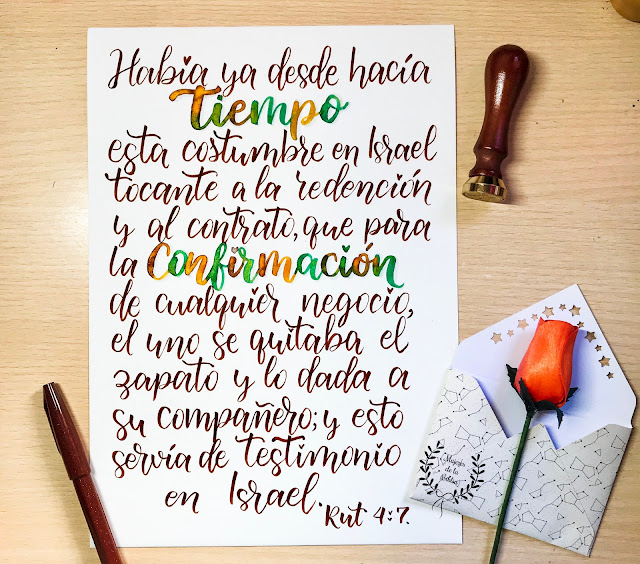 Había ya desde hacía
tiempo
esta costumbre en Israel
tocante a la redención
y al contrato, que para
la Confirmación
de cualquier negocio,
el uno se quitaba el
zapato y lo dada a
su compañero; y esto
servía de testimonio
en Israel.
Rut 4:7.
Mujeres
de la
Biblia